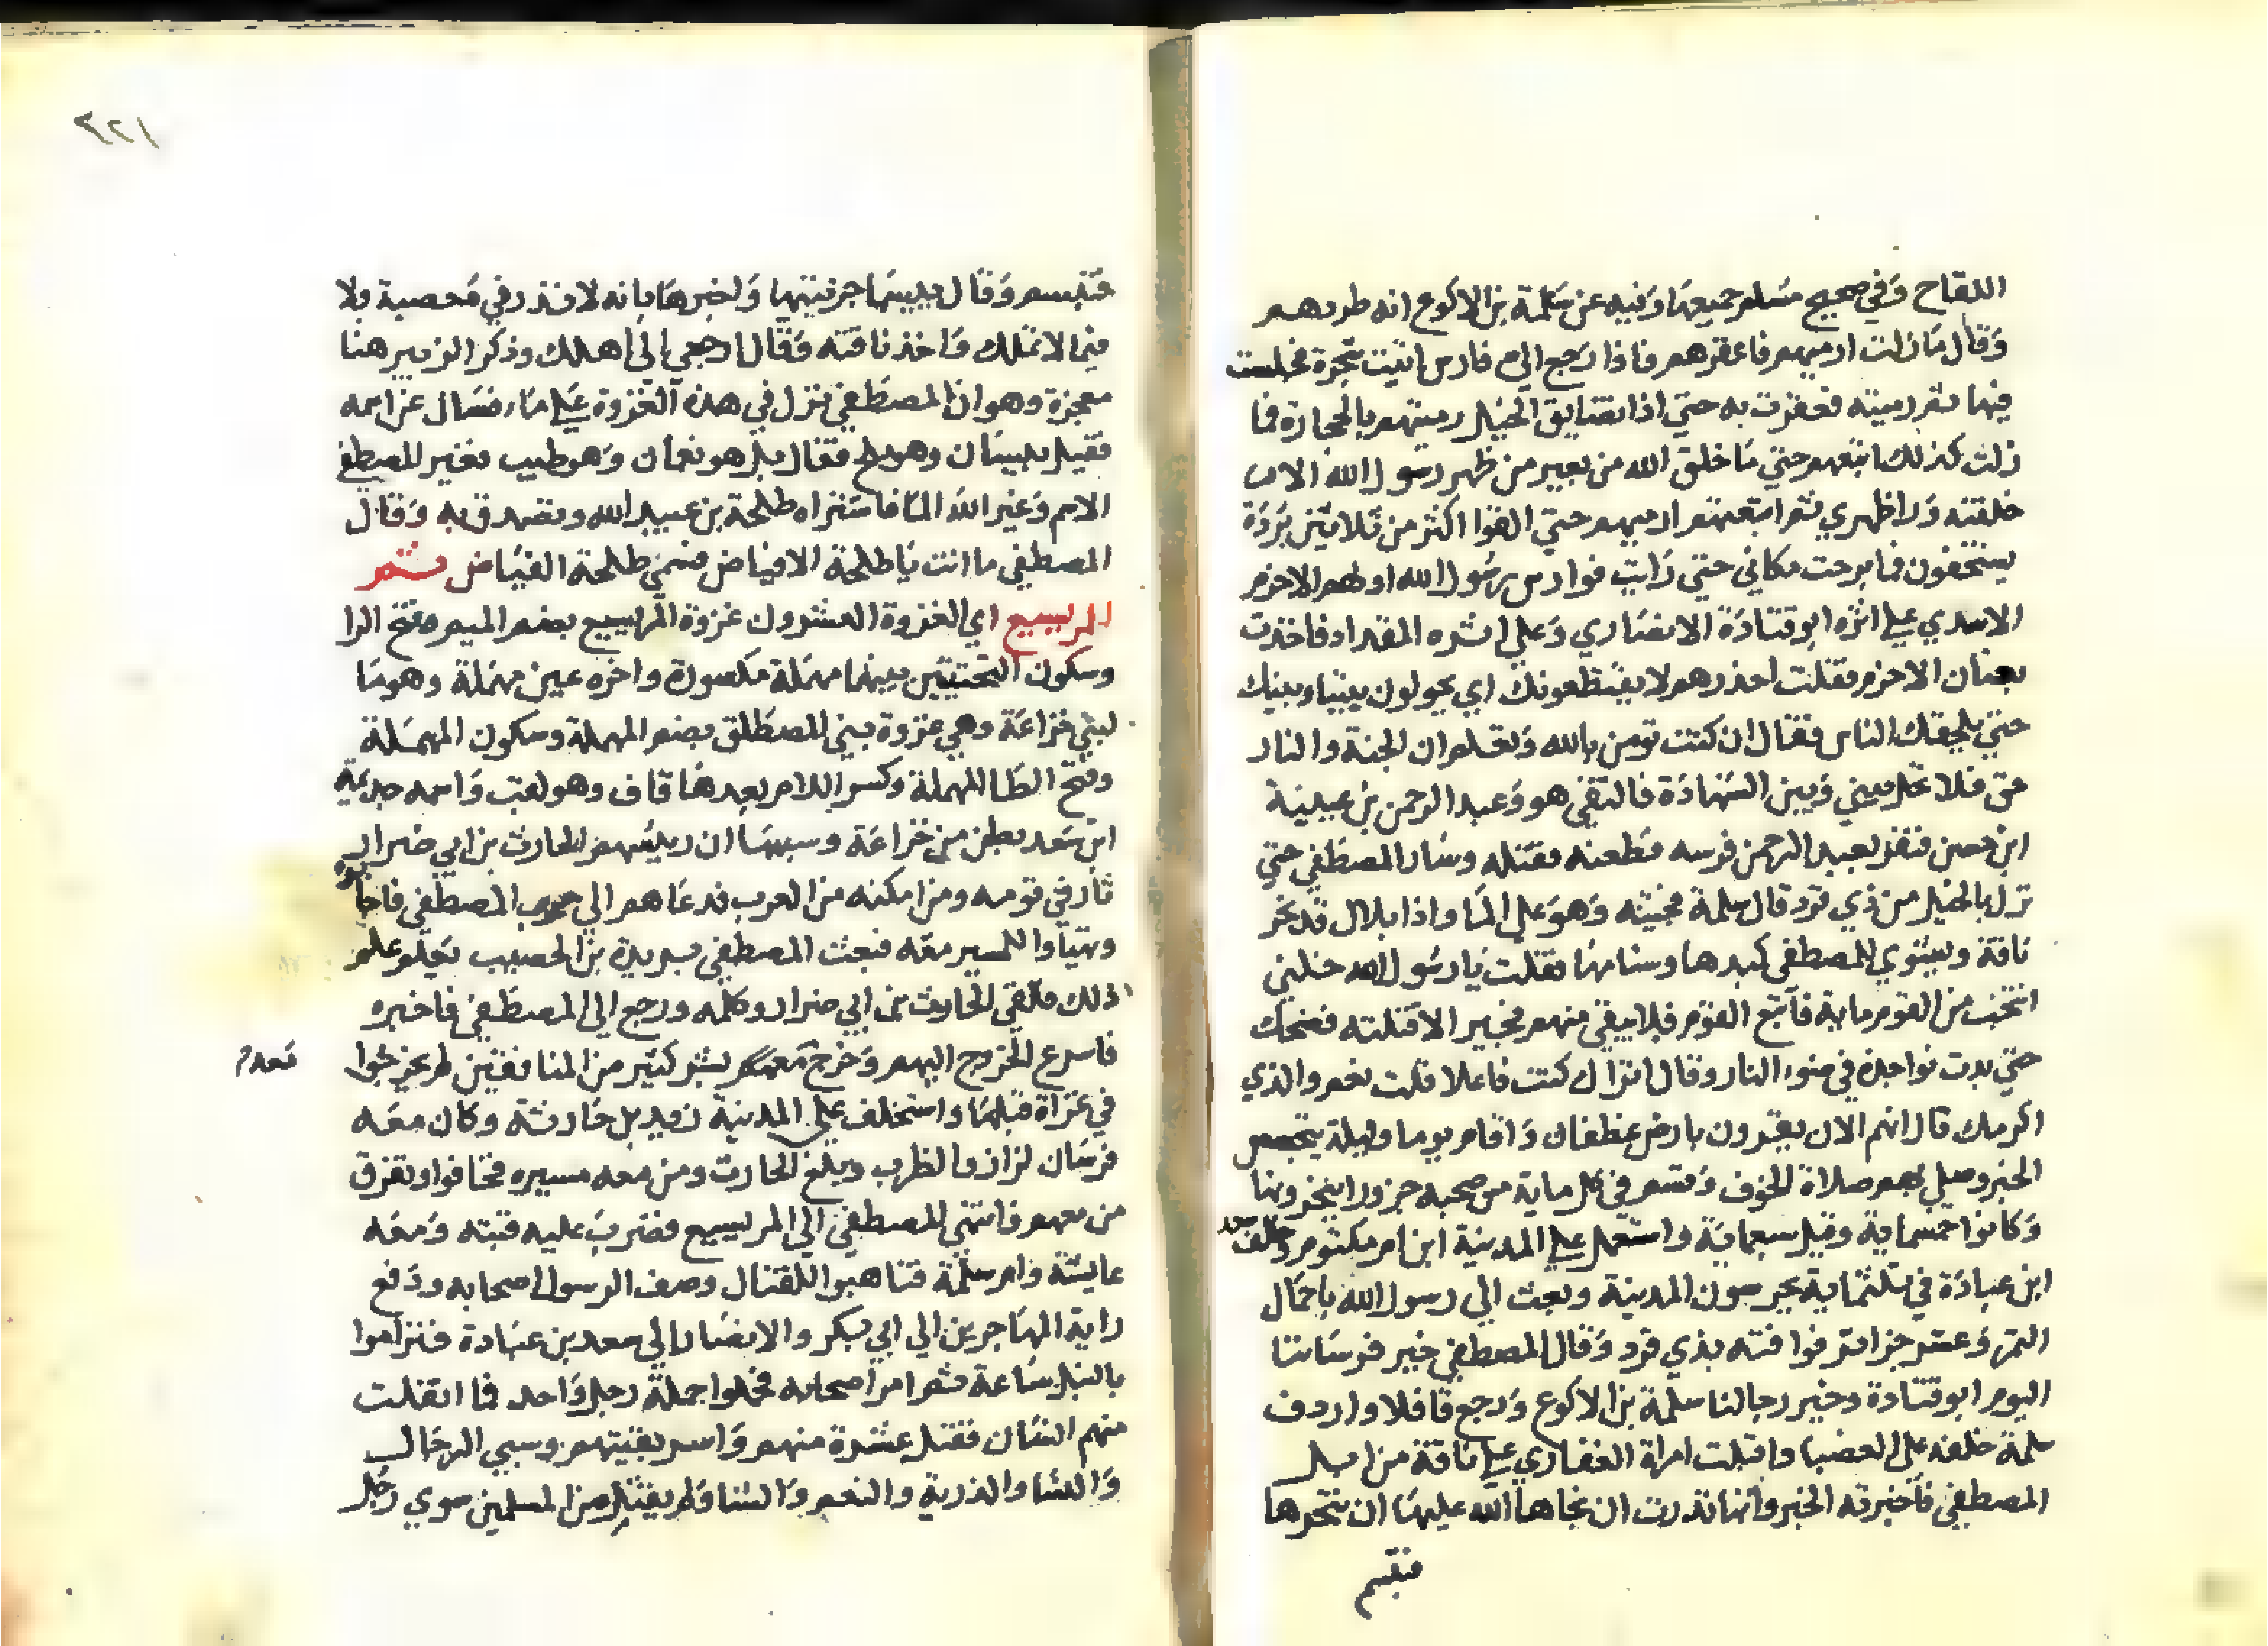 اللقاح وفي صحيح مسلم جميعها وفيه عن سلمة بن الاكوع انه طردهم
وقال ما زلت ارميهم فاعقرهم فاذا رجع الي فارس اتيت شجرة فجلست
فيها ثم رميته فعقرت به حتي اذا تضايق الخيل رميتهم بالحجارة فما
زلت كذلك اتبعهم حتي ما خلق الله من بعير من ظهر رسول الله الا
خلفته ورا ظهري ثم اتبعتهم ارميهم حتي القوا اكثر من ثلاثين بردة
يستخفون فما برحت مكاني حتي رايت فوارس رسول الله اولهم الاخرم
الاسدي علي اثره ابو قتادة الانصاري وعلي اثره المقداد فاخذت
بعنان الاخرم فقلت احذرهم لا يقتطعونك اي يحولون بيننا وبينك
حتي يلحقك الناس فقال ان كنت تومن بالله وتعلم ان الجنة والنار
حق فلا تحل بيني وبين الشهادة فالتقي هو وعبد الرحمن بن عيينة
ابن حصن فعقر بعبد الرحمن فرسه فطعنه فقتله وسار المصطفي حتي
نزل بالخيل من ذي قرد قال سلمة فجيته وهو علي الما واذا بلال قد نحر
ناقة ويشوي للمصطفي كبدها وسنامها فقلت يا رسول الله خلني
انتخب من القوم ماية فاتبع القوم فلا يبقي منهم مخبر الا قتلته فضحك
حتي بدت نواجذه في ضوء النار وقال اتراك كنت فاعلا قلت نعم والذي
اكرمك قال انهم الان يقرون بارض غطفان واقام يوما وليلة يتجسس
الخبر وصلي بهم صلاة الخوف وقسم في كل ماية من صحبه جزورا ينحرونها
وكانوا خمسماية وقيل سبعماية واستعمل علي المدينة ابن ام مكتوم وخلف سعد
ابن عبادة في ثلثماية يحرسون المدينة وبعث الي رسول الله باحمال
التمر وعشر جزاير فوافته بذي قرد وقال المصطفي خير فرساننا
اليوم ابو قتادة وخير رجالنا سلمة بن الاكوع ورجع قافلا واردف
سلمة خلفه علي العضبا واقبلت امراة الغفاري علي ناقة من ابل
المصطفي فاخبرته الخبر وانها نذرت ان نجاها الله عليها ان تنحرها
فتبسم
٣٢١
فتبسم وقال بيسما جزيتيها واخبرها بانه لا نذر في معصية ولا
فيما لا تملك واخذ ناقته وقال ارجعي الي اهلك وذكر الزبير هنا
معجزة وهو ان المصطفي نزل في هذه الغزوة علي ماء فسال عن اسمه
فقيل بيسان وهو مالح فقال بل هو نعمان وهو طيب فغير المصطفي
الاسم وغير الله الما فاشتراه طلحة بن عبيد الله وتصدق به وقال
المصطفي ما انت يا طلحة الا فياض فسمي طلحة الفياض ثم
المريسيع اي الغزوة العشرون غزوة المريسيع بضم الميم وفتح الرا
وسكون التحتيتين بينهما مهملة مكسورة واخره عين مهملة وهو ما
لبني خزاعة وهي غزوة بني المصطلق بضم المهملة وسكون المهملة
وفتح الطا المهملة وكسر اللام بعدها قاف وهو لقب واسمه جذيمة
ابن سعد بطن من خزاعة وسببها ان رييسهم الحارث بن ابي ضرار
ثار في قومه ومن امكنه من العرب فدعاهم الي حرب المصطفي فاجابوه
وتهياوا للمسير معه فبعث المصطفي بريدة بن الحصيب يعلم علم
ذلك فلقي الحارث بن ابي ضرار وكلمه ورجع الي المصطفي فاخبره
فاسرع الخروج اليهم وخرج معهم بشر كثير من المنافقين لم يخرجوا
في غزاة قبلها واستخلف علي المدينة زيد بن حارثة وكان معه
فرسان لزاز والظرب وبلغ الحارث ومن معه مسيره فخافوا وتفرق
من معهم فانتهي المصطفي الي المريسيع فضرب عليه قبته ومعه
عايشة وام سلمة فتاهبوا للقتال وصف الرسول اصحابه ودفع
راية المهاجرين الي ابي بكر والانصار الي سعد بن عبادة فتراموا
بالنبل ساعة ثم امر اصحابه فحملوا حملة رجل واحد فما انفلت
منهم انسان فقتل عشرة منهم واسر بقيتهم وسبي الرجال
والنسا والذرية والنعم والشا ولم يقتل من المسلمين سوي رجل